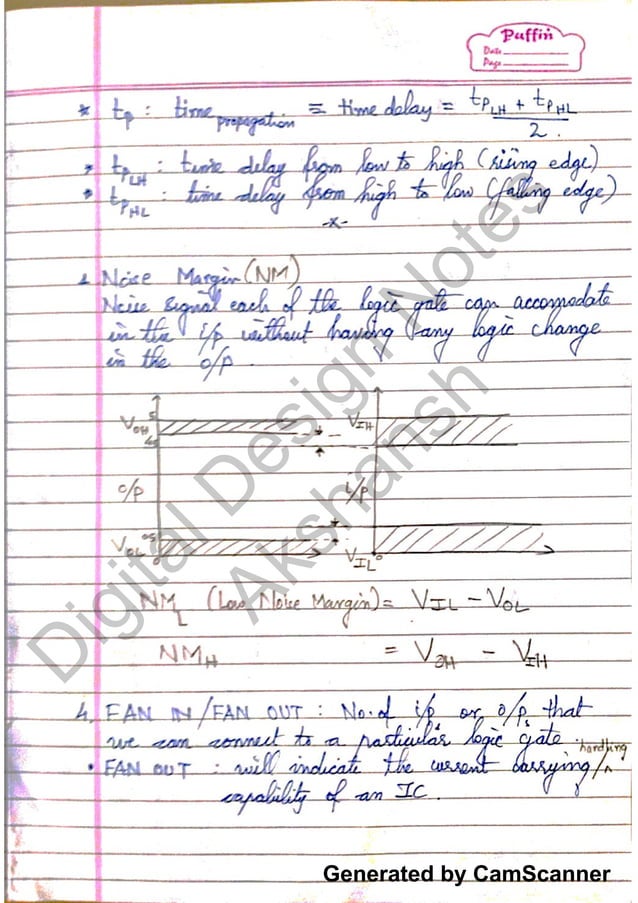 Puffin
Date
Page
* tp : time propagation ≡ time delay = tPLH + tPHL / 2.
* tPLH : time delay from low to high (rising edge)
* tPHL : time delay from high to low (falling edge)
-x-
Noise Margin (NM)
Noise signal each of the logic gate can accomodate
in the i/p without having any logic change
in the o/p.
5
VOH
VIH
o/p
i/p
VOL
0
VIL
0
NML (Low Noise Margin) = VIL - VOL
NMH = VOH - VIH
4. FAN IN/FAN OUT : No. of i/p or o/p that
we can connect to a particular logic gate.
• FAN OUT : will indicate the current carrying/handling
capability of an IC.
Digital Design Notes
Akshansh
Generated by CamScanner